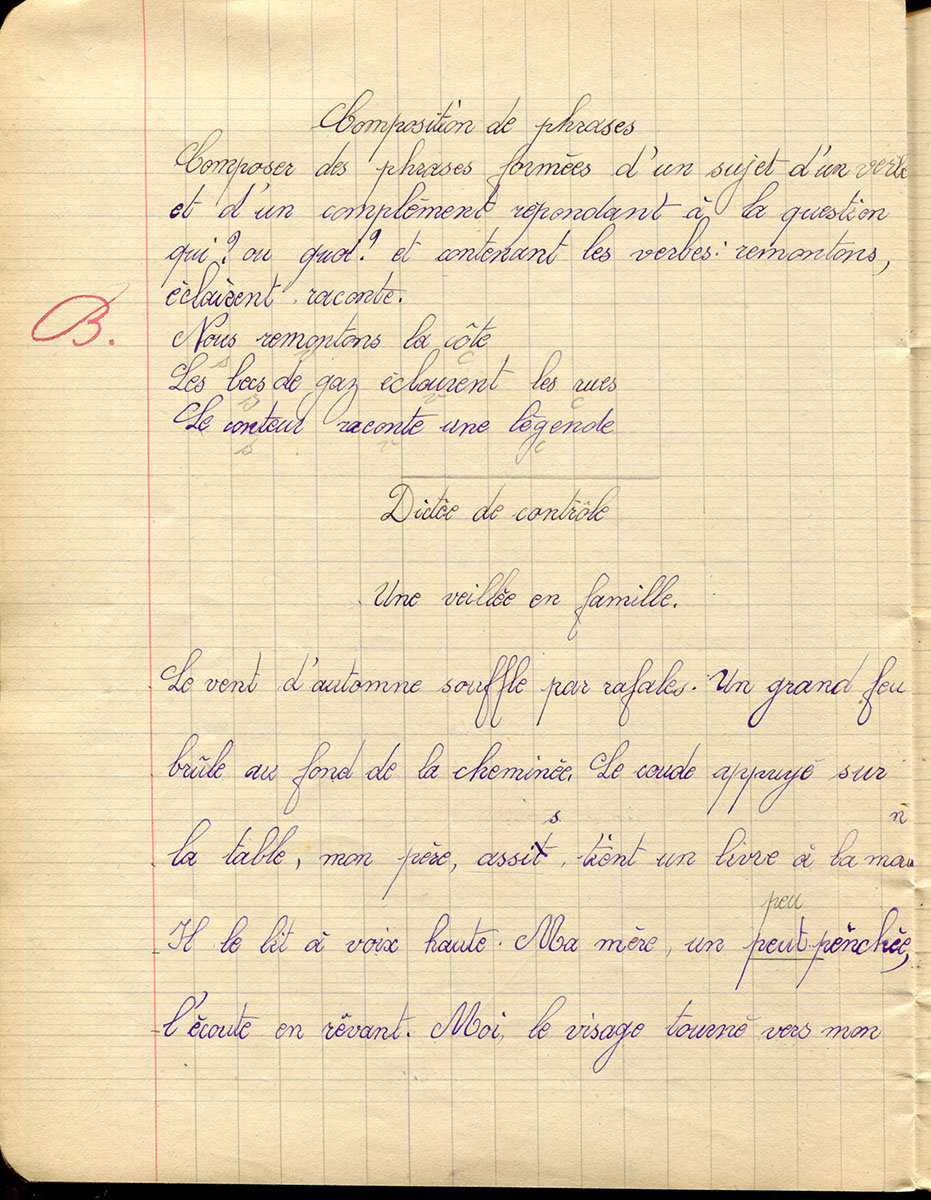 Composition de phrases
Composer des phrases formées d'un sujet d'un verbe
et d'un complément répondant à la question
qui ? ou quoi ? et contenant les verbes : remontons,
éclairent, raconte.
B.
Nous remontons la côte
s v c
Les becs de gaz éclairent les rues
s v c
Le conteur raconte une légende
s v c
Dictée de contrôle
Une veillée en famille.
Le vent d'automne souffle par rafales. Un grand feu
brûle au fond de la cheminée. Le coude appuyé sur
s n
la table, mon père, assit, tient un livre à la mai
peu
Il le lit à voix haute. Ma mère, un peut penchée,
l'écoute en rêvant. Moi, le visage tourné vers mon